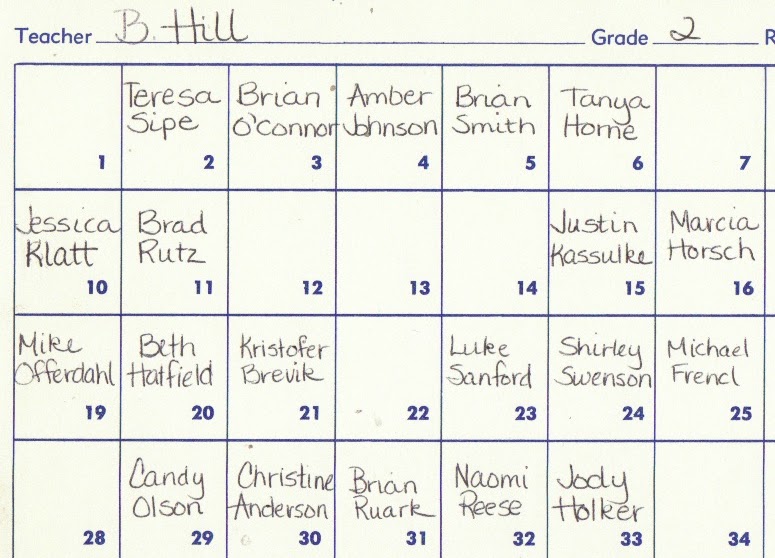 Teacher B. Hill Grade 2 R
Teresa Brian Amber Brian Tanya
Sipe O'Connor Johnson Smith Horne
1 2 3 4 5 6 7
Jessica Brad Justin Marcia
Klatt Rutz Kassulke Horsch
10 11 12 13 14 15 16
Mike Beth Kristofer Luke Shirley Michael
Offerdahl Hatfield Brevik Sanford Swenson Frencl
19 20 21 22 23 24 25
Candy Christine Brian Naomi Jody
Olson Anderson Ruark Reese Holker
28 29 30 31 32 33 34